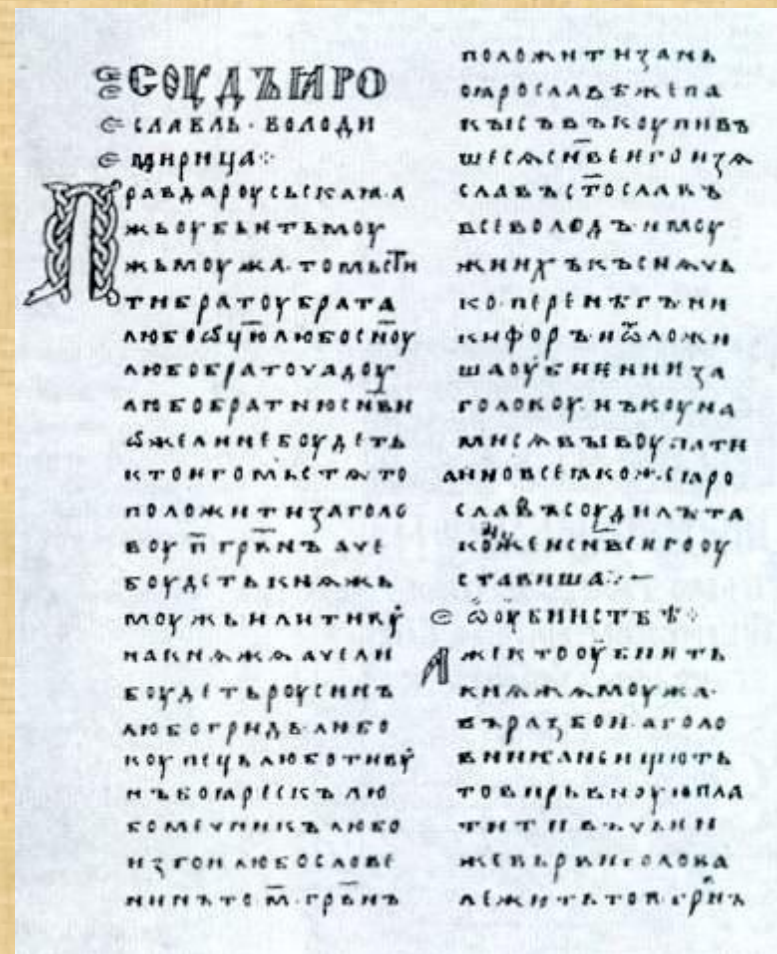 СОУДЪ ꙖРО
СЛАВЛЬ · ВОЛОДИ
МИРИЦА ⁘
ПРАВДА РОУСЬСКАꙖ · А
ЖЬ ОУБЬИТЬ МОУ
ЖЬ МОУЖА · ТО МЬСТИ
ТИ БРАТОУ БРАТА
ЛЮБО ѾЦЮ ЛЮБО СН҃ОУ
ЛЮБО БРАТОУЧАДОУ
ЛЮБО БРАТНЮ СН҃ВИ
ѾЖЕ ЛИ НЕ БОУДЕТЬ
КТО ѤГО МЬСТѦ ТО
ПОЛОЖИТИ ЗА ГОЛО
ВОУ П҃ ГРВ҃НЪ АЧЕ
БОУДЕТЬ КНѦЖЬ
МОУЖЬ ИЛИ ТИВОУ
НА КНѦЖѦ АЧЕ ЛИ
БОУДЕТЬ РОУСИНЪ
ЛЮБО ГРИДЬ ЛЮБО
КОУПЕЦЬ ЛЮБО ТИВОУ
НЪ БОꙖРЕСКЪ ЛЮ
БО МЕЧНИКЪ ЛЮБО
ИЗГОИ ЛЮБО СЛОВЕ
НИНЪ ТО М҃ · ГРВ҃НЪ
ПОЛОЖИТИ ЗА НЬ
ПО ꙖРОСЛАВѢ ЖЕ ПА
КЫ СЪВЪКОУПИВЪ
ШЕСѦ СН҃ВЕ ѤГО ИЗѦ
СЛАВЪ СТ҃ОСЛАВЪ
ВСЕВОЛОДЪ · И МОУ
ЖИ ИХЪ КЪСНѦЧЬ
КО · ПЕРЕНѢГЪ · НИ
КИФОРЪ · И ѾЛОЖИ
ША ОУБИѤНИѤ ЗА
ГОЛОВОУ · НЪ КОУНА
МИ СѦ ВЫКОУПАТИ
А ИНО ВСЕ ꙖКОЖЕ ꙖРО
СЛАВЪ СОУДИЛЪ ТА
КОЖЕ И СН҃ВЕ ѤГО ОУ
СТАВИША ⁘ —
Ѡ ОУБИИСТВѢ ⁘
АЖЕ КТО ОУБИИТЬ
КНѦЖѦ МОУЖА ·
ВЪ РАЗБОИ · А ГОЛО
ВНИКА НЕ ИЩЮТЬ
ТО ВИРЬВНОУЮ ПЛА
ТИТИ ВЪ ЧЬѤИ
ЖЕ ВЬРВИ ГОЛОВА
ЛЕЖИТЬ ТО П҃ · ГРВ҃НЪ